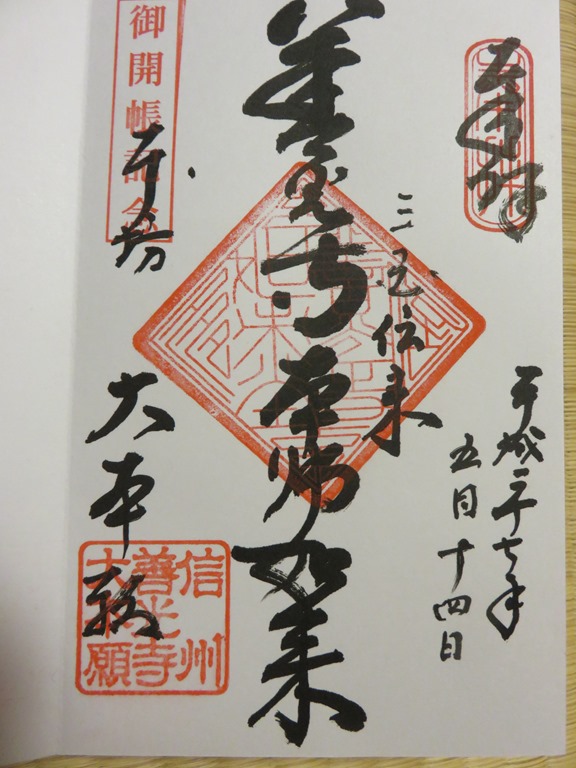 奉拝
平成二十七年
五月十四日
三国伝来
善光寺本師如来
御開帳記念
本坊
大本願
信州
善光寺
大本願